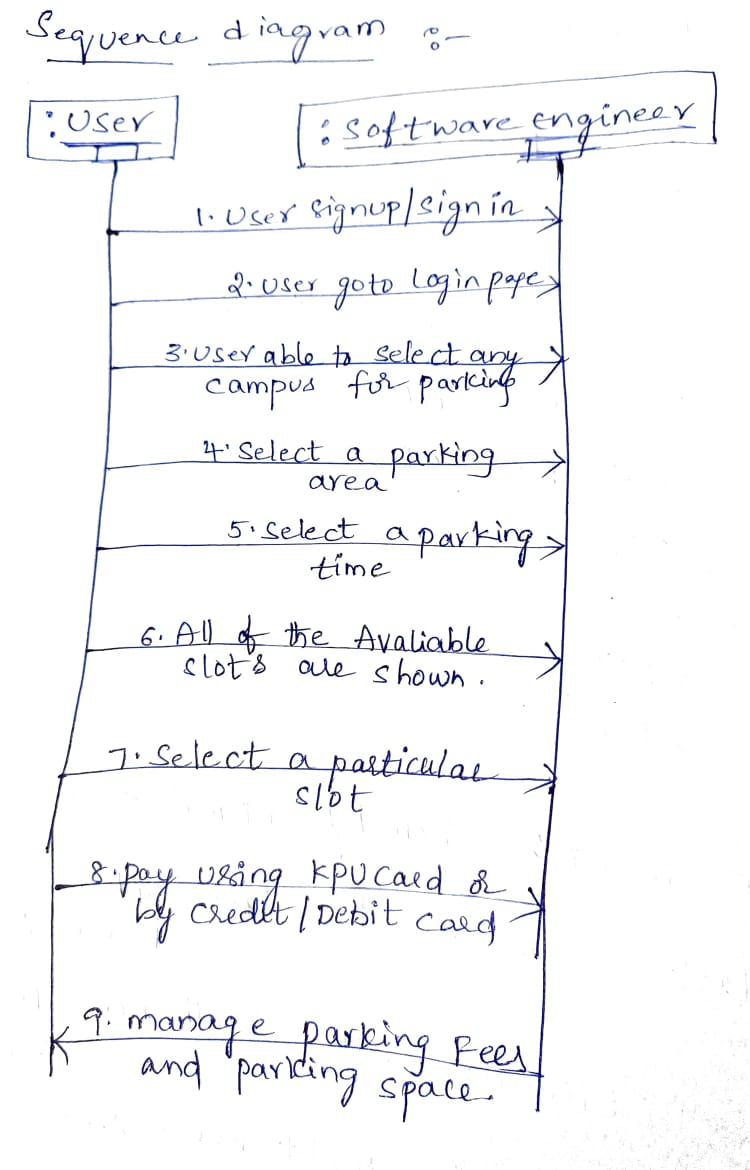 Sequence diagram :-
: User
: Software engineer
1. User signup/sign in
2. User goto Login page
3. User able to select any
campus for parking
4. Select a parking
area
5. Select a parking
time
6. All of the Avaliable
slots are shown.
7. Select a particular
slot
8. pay using KPU card or
by credit / Debit card
9. manage parking Fees
and parking space.